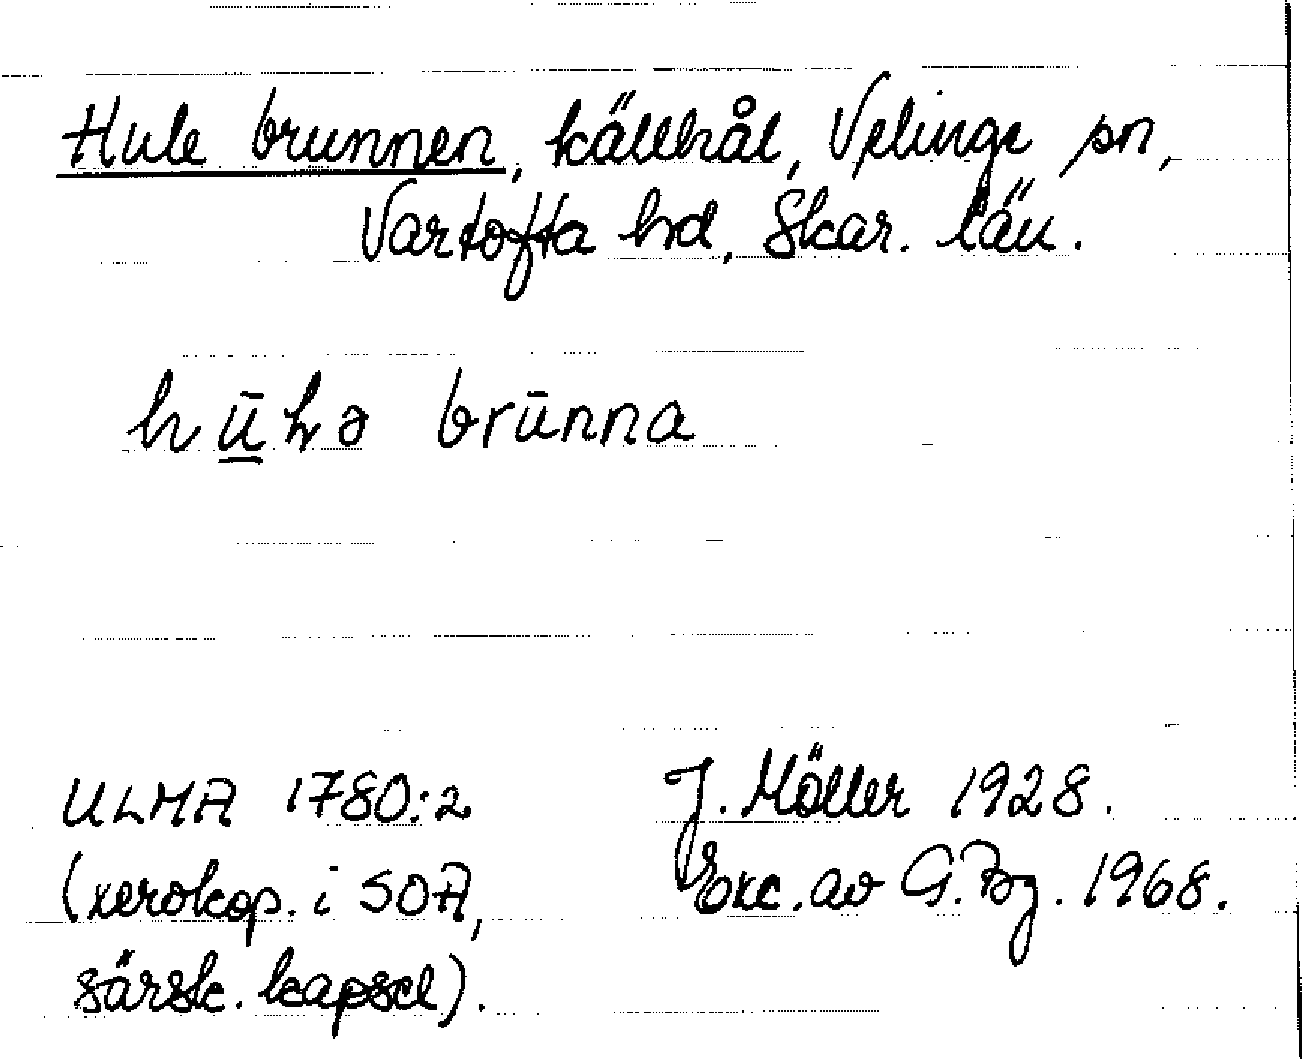 Hule brunnen, källhål, Velinge sn,
Vartofta hd, Skar. län.
brūnna
ULMA 1780:2
(xerokop. i SOA,
särsk. kapsel).
J. Möller 1928.
Exc. av G. Bg. 1968.